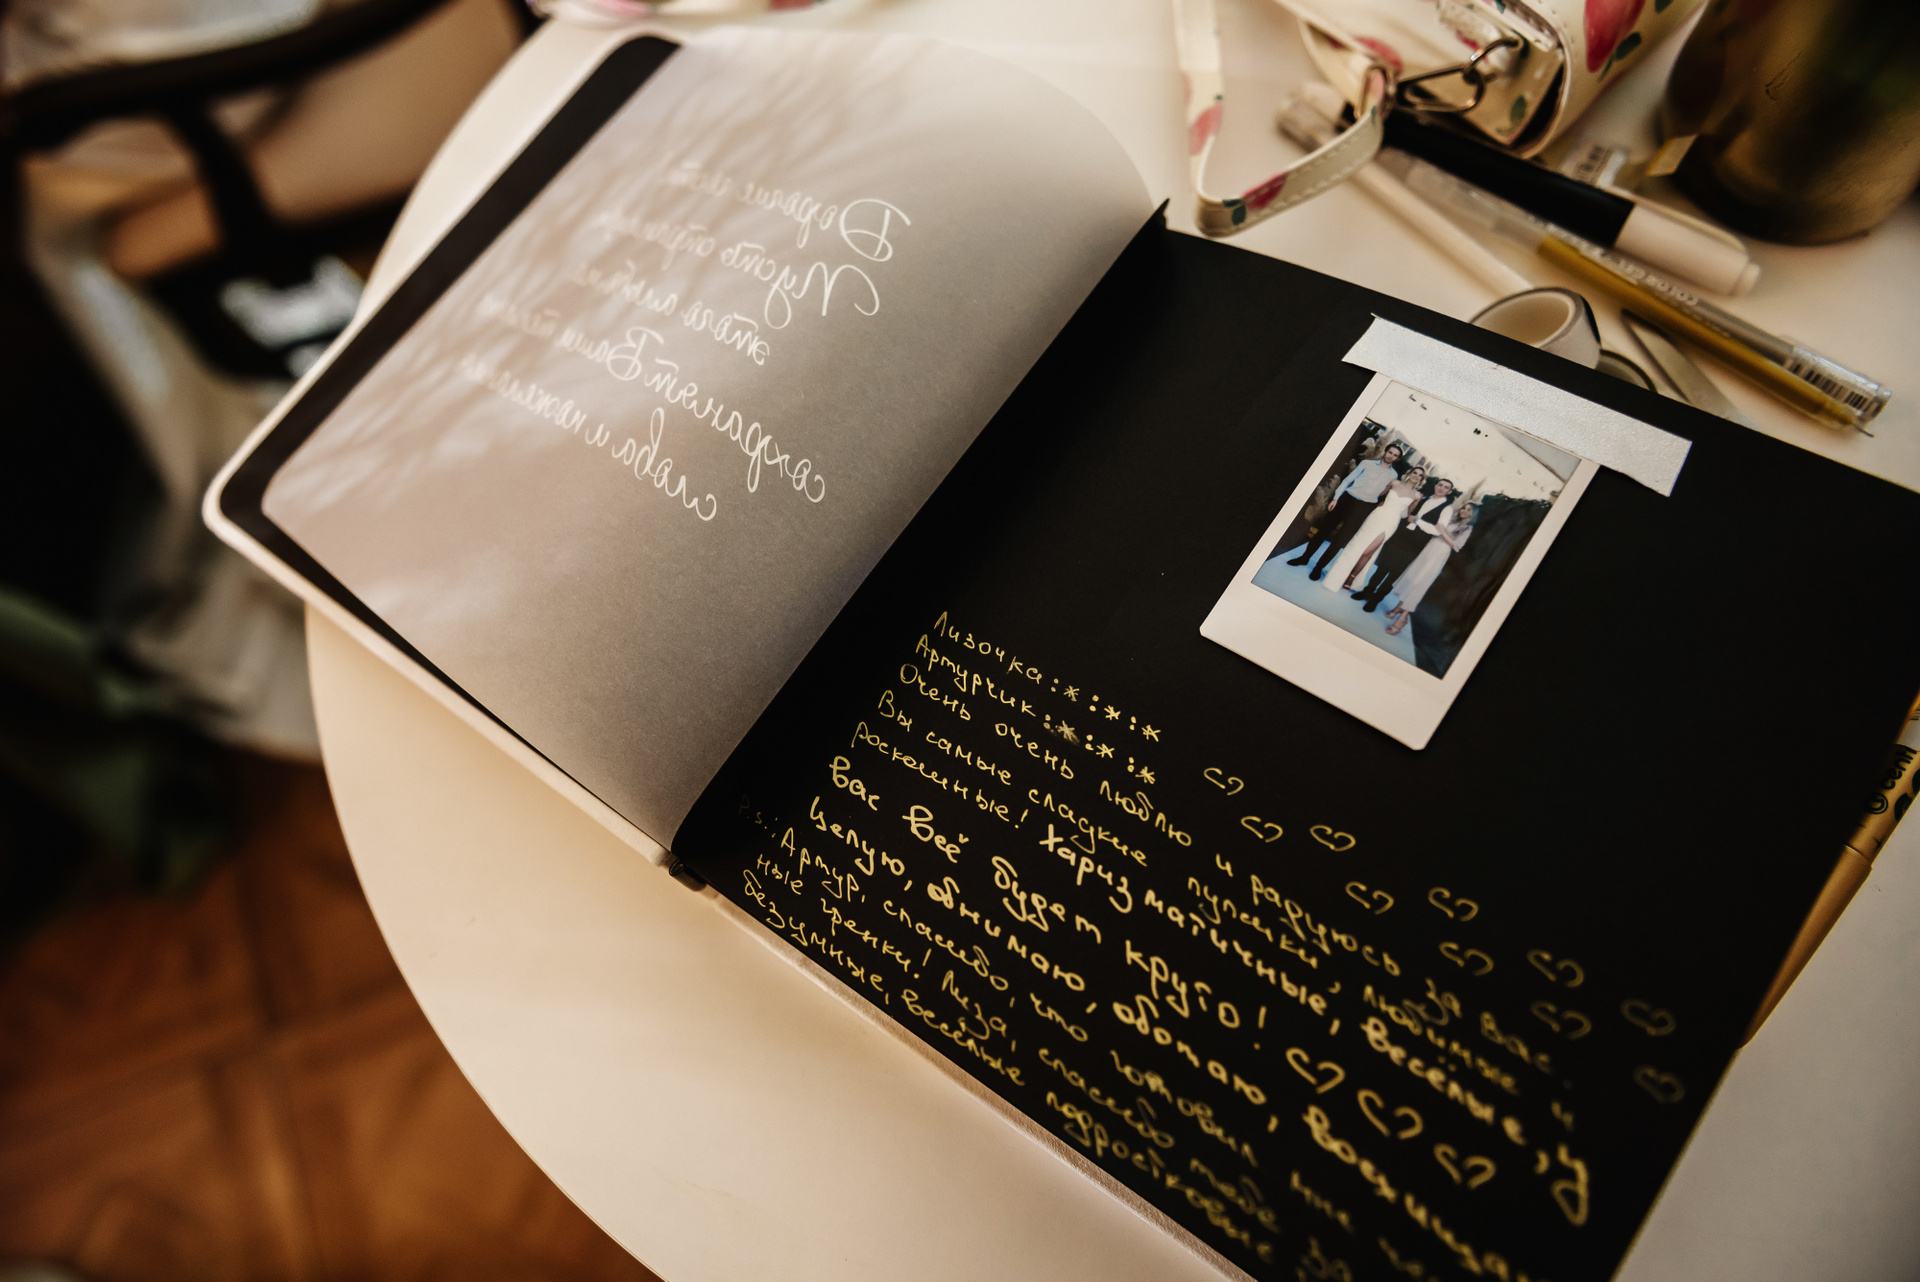 Дорогие гости
Пусть страницы
этого альбома
сохранят Ваши теплые
слова и пожелания
Лизочка :* :* :*
Артурчик :* :* :*
Очень очень люблю и радуюсь за вас.
Вы самые сладкие пупсики, любимые и
роскошные! Харизматичные, весёлые, у
вас всё будет круто!
Целую, обнимаю, обожаю, восхища
P.s.: Артур, спасибо, что готовил мне
ные гренки! Лиза, спасибо тебе за
безумные, весёлые подростковые
COLOR GEL